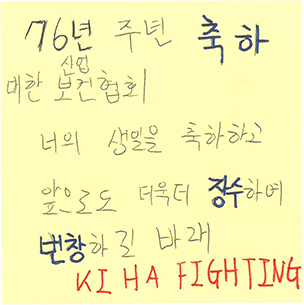 76년 주년 축하
산업
대한 보건협회
너의 생일을 축하하고
앞으로도 더욱더 장수하며
번창하길 바래
KIHA FIGHTING